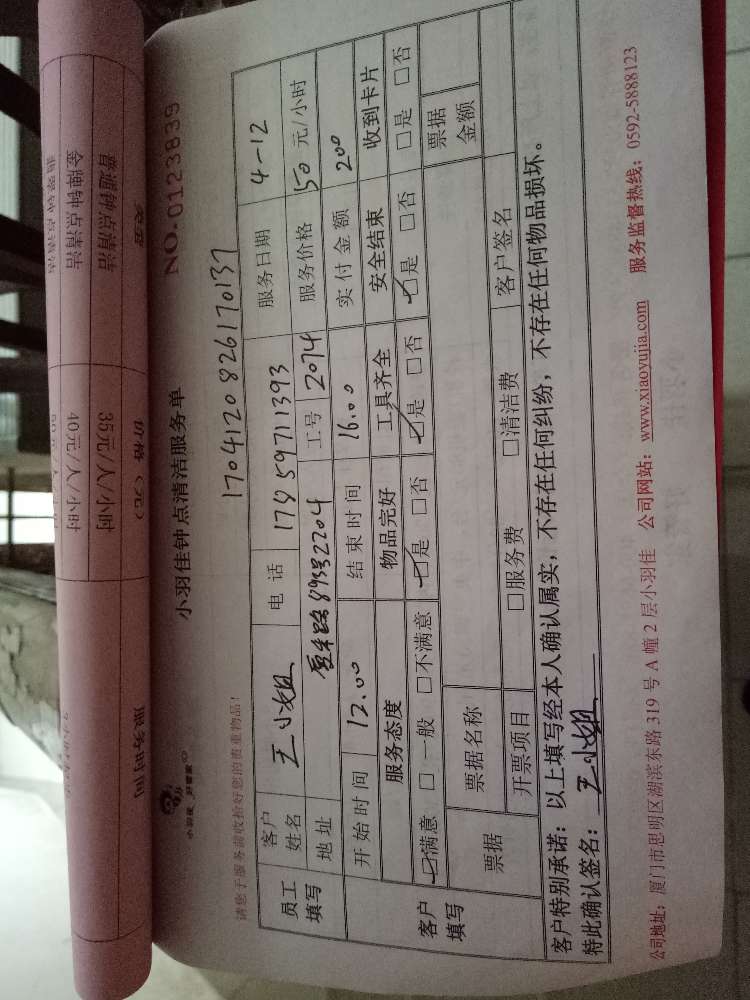 类型 价格（元） 服务时间
普通钟点清洁 35元/人/小时
金牌钟点清洁 40元/人/小时
小羽佳钟点清洁服务单 NO.0123839
小羽佳 好管家
请您于服务前收拾好您的贵重物品！
1704120826170137
员工填写
客户姓名 王小姐 电话 17859711393 服务日期 4-12
地址 89号2204 工号 2074 服务价格 50元/小时
开始时间 12.00 结束时间 16.00 实付金额 200
客户填写
服务态度 物品完好 工具齐全 安全结束 收到卡片
☑满意 □一般 □不满意 ☑是 □否 ☑是 □否 ☑是 □否 □是 □否
票据 票据名称 票据金额
开票项目 □服务费 □清洁费 客户签名
客户特别承诺：以上填写经本人确认属实，不存在任何纠纷，不存在任何物品损坏。
特此确认签名：王小姐
公司地址：厦门市思明区湖滨东路319号A幢2层小羽佳 公司网站：www.xiaoyujia.com 服务监督热线：0592-5888123